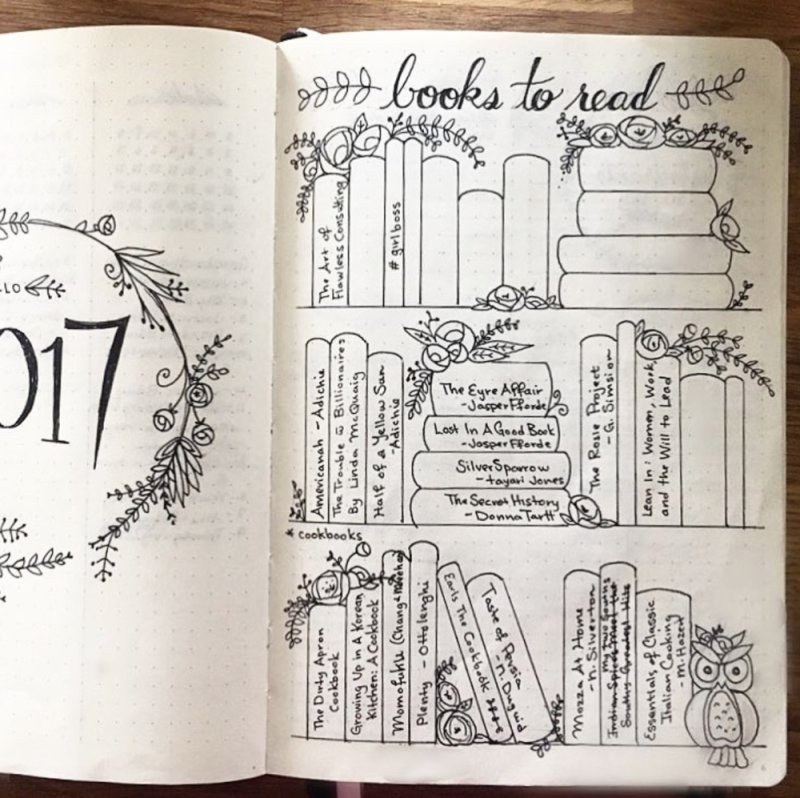 LO
017
books to read
The Art of
Flawless Consulting
# girlboss
Americanah - Adichie
The Trouble w Billionaires
By Linda McQuaig
Half of a Yellow Sun
- Adichie
The Eyre Affair
- Jasper Fforde
Lost In A Good Book
- Jasper Fforde
Silver Sparrow
- tayari Jones
The Secret History
- Donna Tartt
The Rosie Project
- G. Simsion
Lean In: Women, Work,
and the Will to Lead
* cookbooks
The Dirty Apron
Cookbook
Growing Up in A Korean
Kitchen: A Cookbook
Momofuku (Chang & Meehan)
Plenty - Ottolenghi
Earls The Cookbook
Taste of Persia
- N. Duguid
Mozza At Home
- N. Silverton
My Two Souths
Indian Spices Meet the
Souths Greatest Hits
Essentials of Classic
Italian Cooking
- M. Hazen